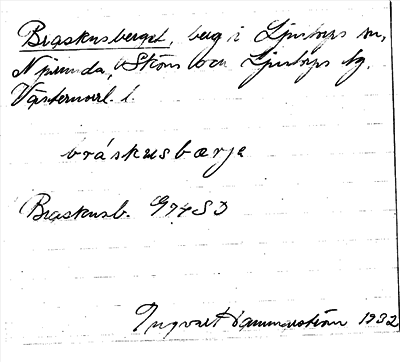 Braskusberget, berg i Ljustorps sn,
Njurunda, Sköns och Ljustorps tg,
Västernorrl. l.
bráskusbærje
Braskusb. G74SD
Ingvar Hammarström 1932